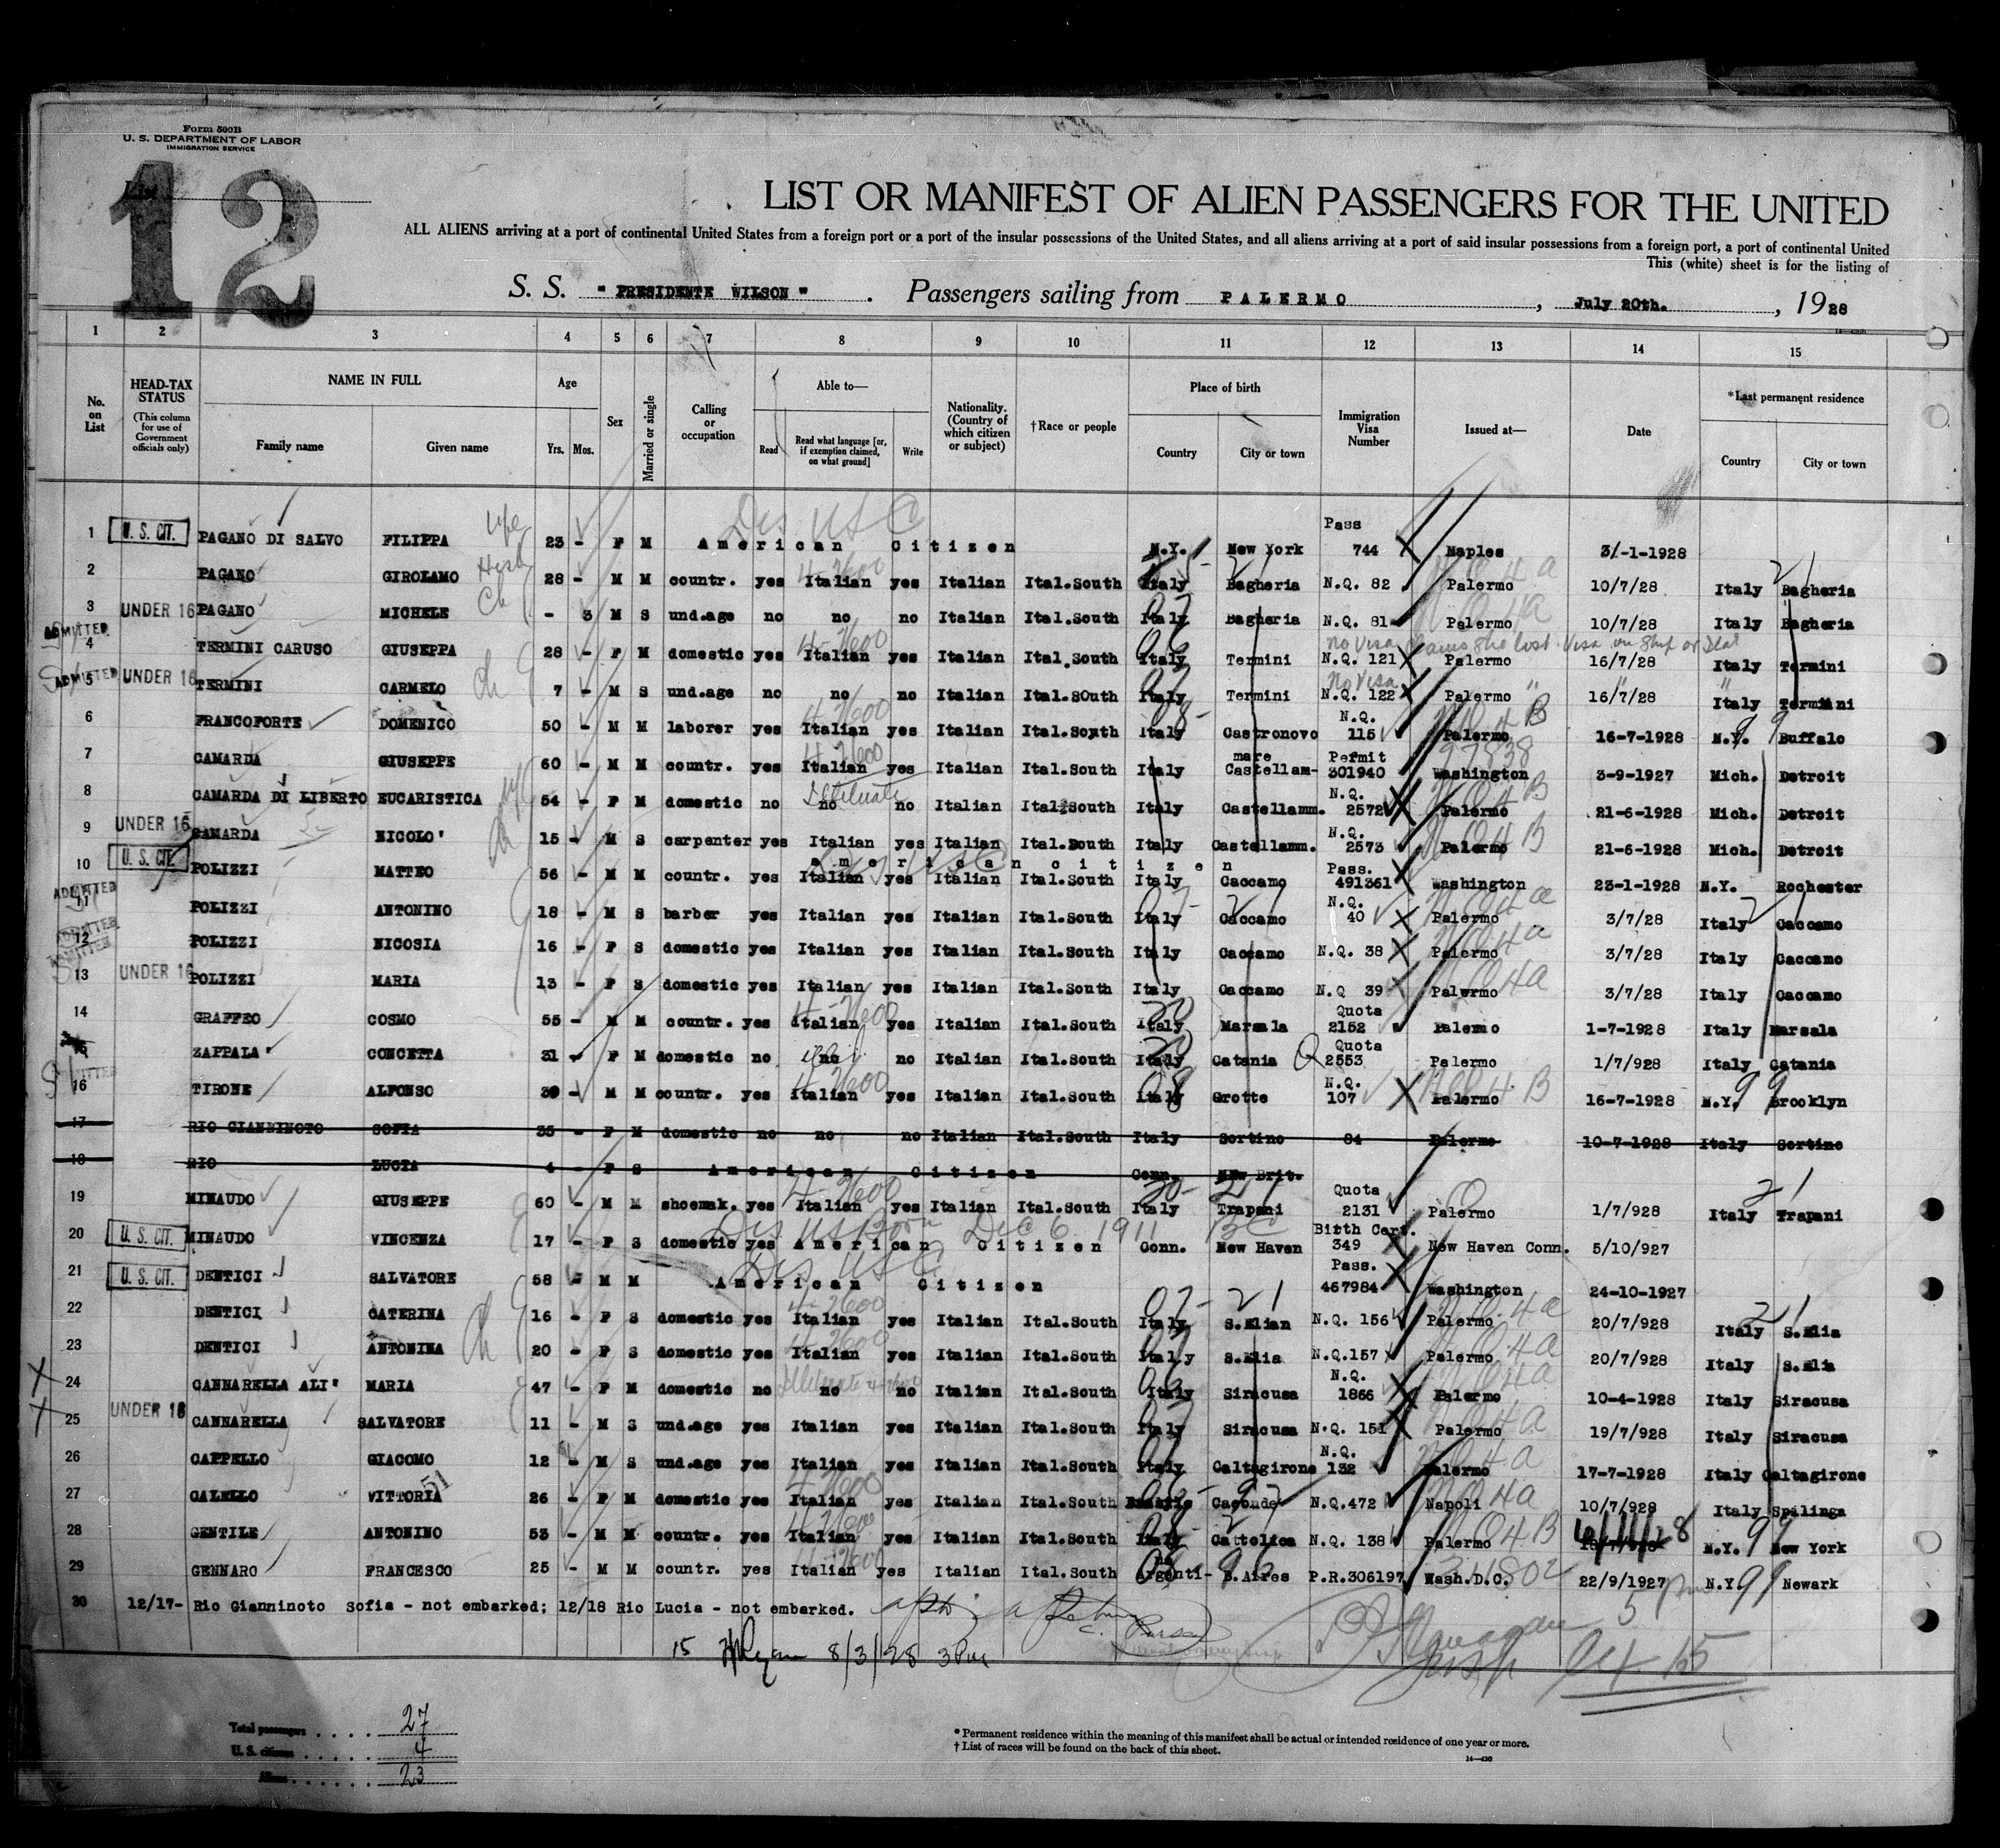 Form 500B
U. S. DEPARTMENT OF LABOR
IMMIGRATION SERVICE
List
12
LIST OR MANIFEST OF ALIEN PASSENGERS FOR THE UNITED
ALL ALIENS arriving at a port of continental United States from a foreign port or a port of the insular possessions of the United States, and all aliens arriving at a port of said insular possessions from a foreign port, a port of continental United
This (white) sheet is for the listing of
S. S. " PRESIDENTE WILSON " . Passengers sailing from PALERMO , July 20th. , 1928
1 2 3 4 5 6 7 8 9 10 11 12 13 14 15
No. on List
HEAD-TAX STATUS (This column for use of Government officials only)
NAME IN FULL Family name Given name
Age Yrs. Mos.
Sex
Married or single
Calling or occupation
Able to— Read Read what language [or, if exemption claimed, on what ground] Write
Nationality. (Country of which citizen or subject)
†Race or people
Place of birth Country City or town
Immigration Visa Number
Issued at—
Date
*Last permanent residence Country City or town
1 U. S. CIT. PAGANO DI SALVO FILIPPA wife 23 - F M American Citizen Dis USC N.Y. New York Pass 744 Naples 3/-1-1928
2 PAGANO GIROLAMO Husb 28 - M M countr. yes Italian yes Italian Ital.South Italy Bagheria N.Q. 82 Palermo 10/7/28 Italy Bagheria
3 UNDER 16 PAGANO MICHELE Ch - 3 M S und.age no no no Italian Ital.South Italy Bagheria N.Q. 81 Palermo 10/7/28 Italy Bagheria
ADMITTED
4 TERMINI CARUSO GIUSEPPA 28 - F M domestic yes Italian yes Italian Ital.South Italy Termini N.Q. 121 Palermo 16/7/28 Italy Termini
no Visa claims she lost Visa on Ship
ADMITTED
5 UNDER 16 TERMINI CARMELO ch 7 - M S und.age no no no Italian Ital.sOuth Italy Termini no Visa N.Q. 122 Palermo " 16/7/28 " Italy " Termini
6 FRANCOFORTE DOMENICO 50 - M M laborer yes Italian yes Italian Ital.South Italy Castronovo N.Q. 115 Palermo 16-7-1928 N.Y. Buffalo
7 CAMARDA GIUSEPPE 60 - M M countr. yes Italian yes Italian Ital.South Italy Castellam- mare Permit 301940 Washington 3-9-1927 Mich. Detroit
8 CAMARDA DI LIBERTO EUCARISTICA wf 54 - F M domestic no no no Illiterate Italian Ital.South Italy Castellamm. N.Q. 2572 Palermo 21-6-1928 Mich. Detroit
9 UNDER 16 CAMARDA NICOLO' ch 15 - M S carpenter yes Italian yes Italian Ital.South Italy Castellamm. N.Q. 2573 Palermo 21-6-1928 Mich. Detroit
american citizen
10 U. S. CIT. POLIZZI MATTEO 56 - M M countr. yes Italian yes Italian Ital.South Italy Caccamo Pass. 491361 Washington 23-1-1928 N.Y. Rochester
ADMITTED
11 POLIZZI ANTONINO 18 - M S barber yes Italian yes Italian Ital.South Italy Caccamo N.Q. 40 Palermo 3/7/28 Italy Caccamo
ADMITTED
12 POLIZZI NICOSIA 16 - F S domestic yes Italian yes Italian Ital.South Italy Caccamo N.Q. 38 Palermo 3/7/28 Italy Caccamo
ADMITTED
13 UNDER 16 POLIZZI MARIA 13 - F S domestic yes Italian yes Italian Ital.South Italy Caccamo N.Q 39 Palermo 3/7/28 Italy Caccamo
14 GRAFFEO COSMO 55 - M M countr. yes Italian yes Italian Ital.South Italy Marsala Quota 2152 Palermo 1-7-1928 Italy Marsala
15 ZAPPALA' CONCETTA 31 - F M domestic no no no Italian Ital.South Italy Catania Quota 2553 Palermo 1/7/928 Italy Catania
ADMITTED
16 TIRONE ALFONSO 39 - M M countr. yes Italian yes Italian Ital.South Italy Grotte N.Q. 107 Palermo 16-7-1928 N.Y. Brooklyn
17 RIO GIANNINOTO SOFIA 35 - F M domestic no no no Italian Ital.South Italy Sortino 84 Palermo 10-7-1928 Italy Sortino
18 RIO LUCIA 4 - F S American Citizen Conn. New Brit.
19 MINAUDO GIUSEPPE 60 - M M shoemak. yes Italian yes Italian Ital.South Italy Trapani Quota 2131 Palermo 1/7/928 Italy Trapani
Dis US Born Dec 6 1911 BC
20 U. S. CIT. MINAUDO VINCENZA 17 - F S domestic yes American Citizen Conn. New Haven Birth Cert. 349 New Haven Conn. 5/10/927
21 U. S. CIT. DENTICI SALVATORE 58 - M M American Citizen Dis USC Pass. 467984 Washington 24-10-1927
22 DENTICI CATERINA 16 - F S domestic yes Italian yes Italian Ital.South Italy S.Elian N.Q. 156 Palermo 20/7/928 Italy S.Elia
23 DENTICI ANTONINA Ch 20 - F S domestic yes Italian yes Italian Ital.South Italy S.Elia N.Q.157 Palermo 20/7/928 Italy S.Elia
24 CANNARELLA ALI' MARIA 47 - F M domestic no no no Illiterate Italian Ital.South Italy Siracusa N.Q. 1866 Palermo 10-4-1928 Italy Siracusa
25 UNDER 16 CANNARELLA SALVATORE 11 - M S und.age yes Italian yes Italian Ital.South Italy Siracusa N.Q. 151 Palermo 19/7/928 Italy Siracusa
26 CAPPELLO GIACOMO 12 - M S und.age yes Italian yes Italian Ital.South Italy Caltagirone N.Q. 132 Palermo 17-7-1928 Italy Caltagirone
27 GALELLO VITTORIA 26 - F M domestic yes Italian yes Italian Ital.South Caconde N.Q.472 Napoli 10/7/928 Italy Spilinga
28 GENTILE ANTONINO 53 - M M countr. yes Italian yes Italian Ital.South Italy Cattolica N.Q. 138 Palermo N.Y. New York
29 GENNARO FRANCESCO 25 - M M countr. yes Italian yes Italian Ital.South Argenti- B.Aires P.R.306197 Wash.D.C. 22/9/1927 N.Y. Newark
30 12/17- Rio Gianninoto Sofia - not embarked; 12/18 Rio Lucia - not embarked.
15 8/3/28 3 Pm
Total passengers 27
U. S. citizens 4
Aliens 23
* Permanent residence within the meaning of this manifest shall be actual or intended residence of one year or more.
† List of races will be found on the back of this sheet.
14—430